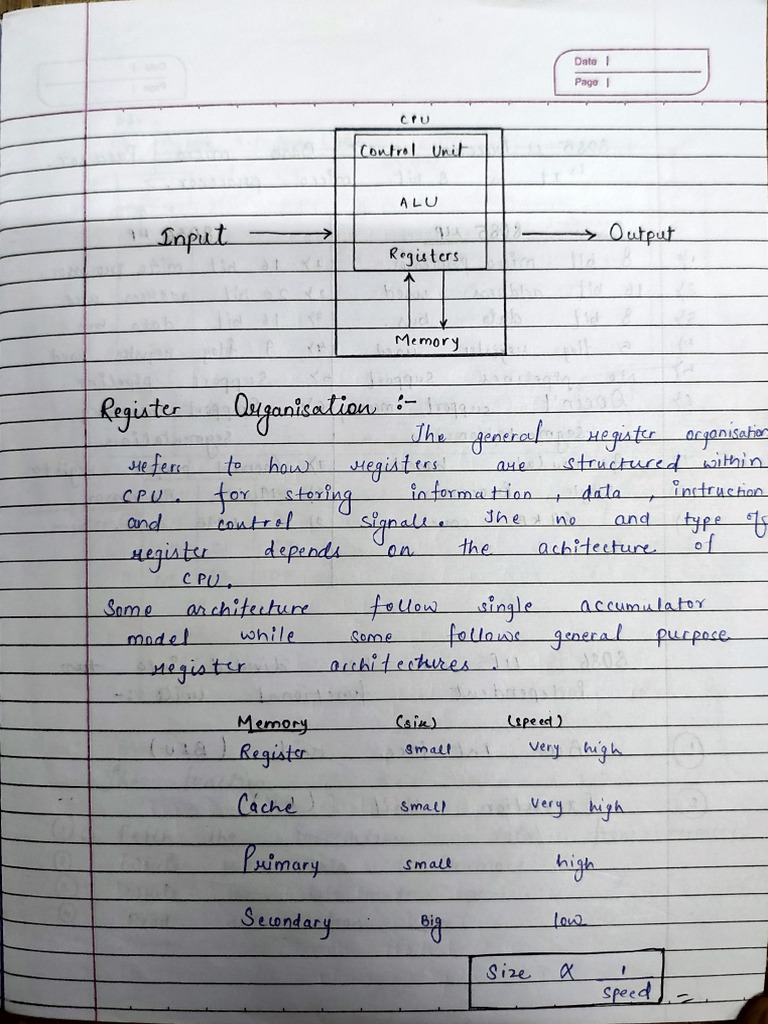 Date
Page
CPU
Control Unit
ALU
Input Output
Registers
Memory
Register Organisation :-
The general register organisation
refers to how registers are structured within
CPU. for storing information, data, instruction
and control signals. The no and type of
register depends on the achitecture of
CPU.
Some architecture follow single accumulator
model while some follows general purpose
register architectures.
Memory (size) (speed)
Register small very high
Cache small very high
Primary small high
Secondary Big low
Size ∝ 1
speed